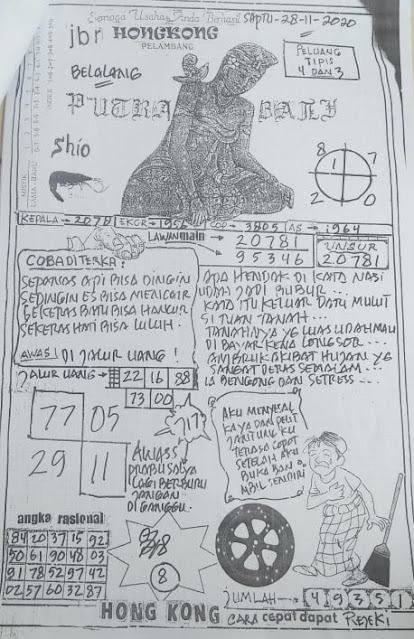 Semoga Usaha Anda Berhasil SABTU-28-11-2020
jbr HONGKONG
PELAMBANG
BELALANG
PELUANG
TIPIS
4 DAN 3
PUTRA BALI
Shio
8 7
1
2 0
KEPALA → 2078 EKOR → 1956 COP → 3805 AS → 1964
LAWAN main → 20781
95346
UNSUR
20781
COBA DITERKA :
SEPANAS API BISA DINGIN
SEDINGIN ES BISA MENCAIR
SEKERAS BATU BISA HANCUR
SEKERAS HATI BISA LULUH.
AWAS! DI JALUR UANG !
ADA HENDAK DI KATA NASI
UDAH JADI BUBUR...
KATA ITU KELUAR DARI MULUT
SI TUAN TANAH...
TANAHNYA YG LUAS UDAH MAU
DI BAYAR KENA LONGSOR...
AMBRUK AKIBAT HUJAN YG
SANGAT DERAS SEMALAM...
IA BENGONG DAN SETRESS...
JALUR UANG → 22 16 88
73 00
77 05
29 11
717
AWASS
PRABU SALYA
LAGI BERBURU
JANGAN
DI GANGGU.
AKU MENYESAL
KAYA DAN PELIT
JANTUNG KU
TERASA COPOT
SETELAH AKU
BUKA DAN
AMBIL SENDIRI
angka rasional
84 20 37 15 92
50 61 90 48 03
91 78 52 97 42
02 57 60 32 87
8
JUMLAH → 4 9 3 5 1
HONG KONG CARA cepat dapat REJEKI